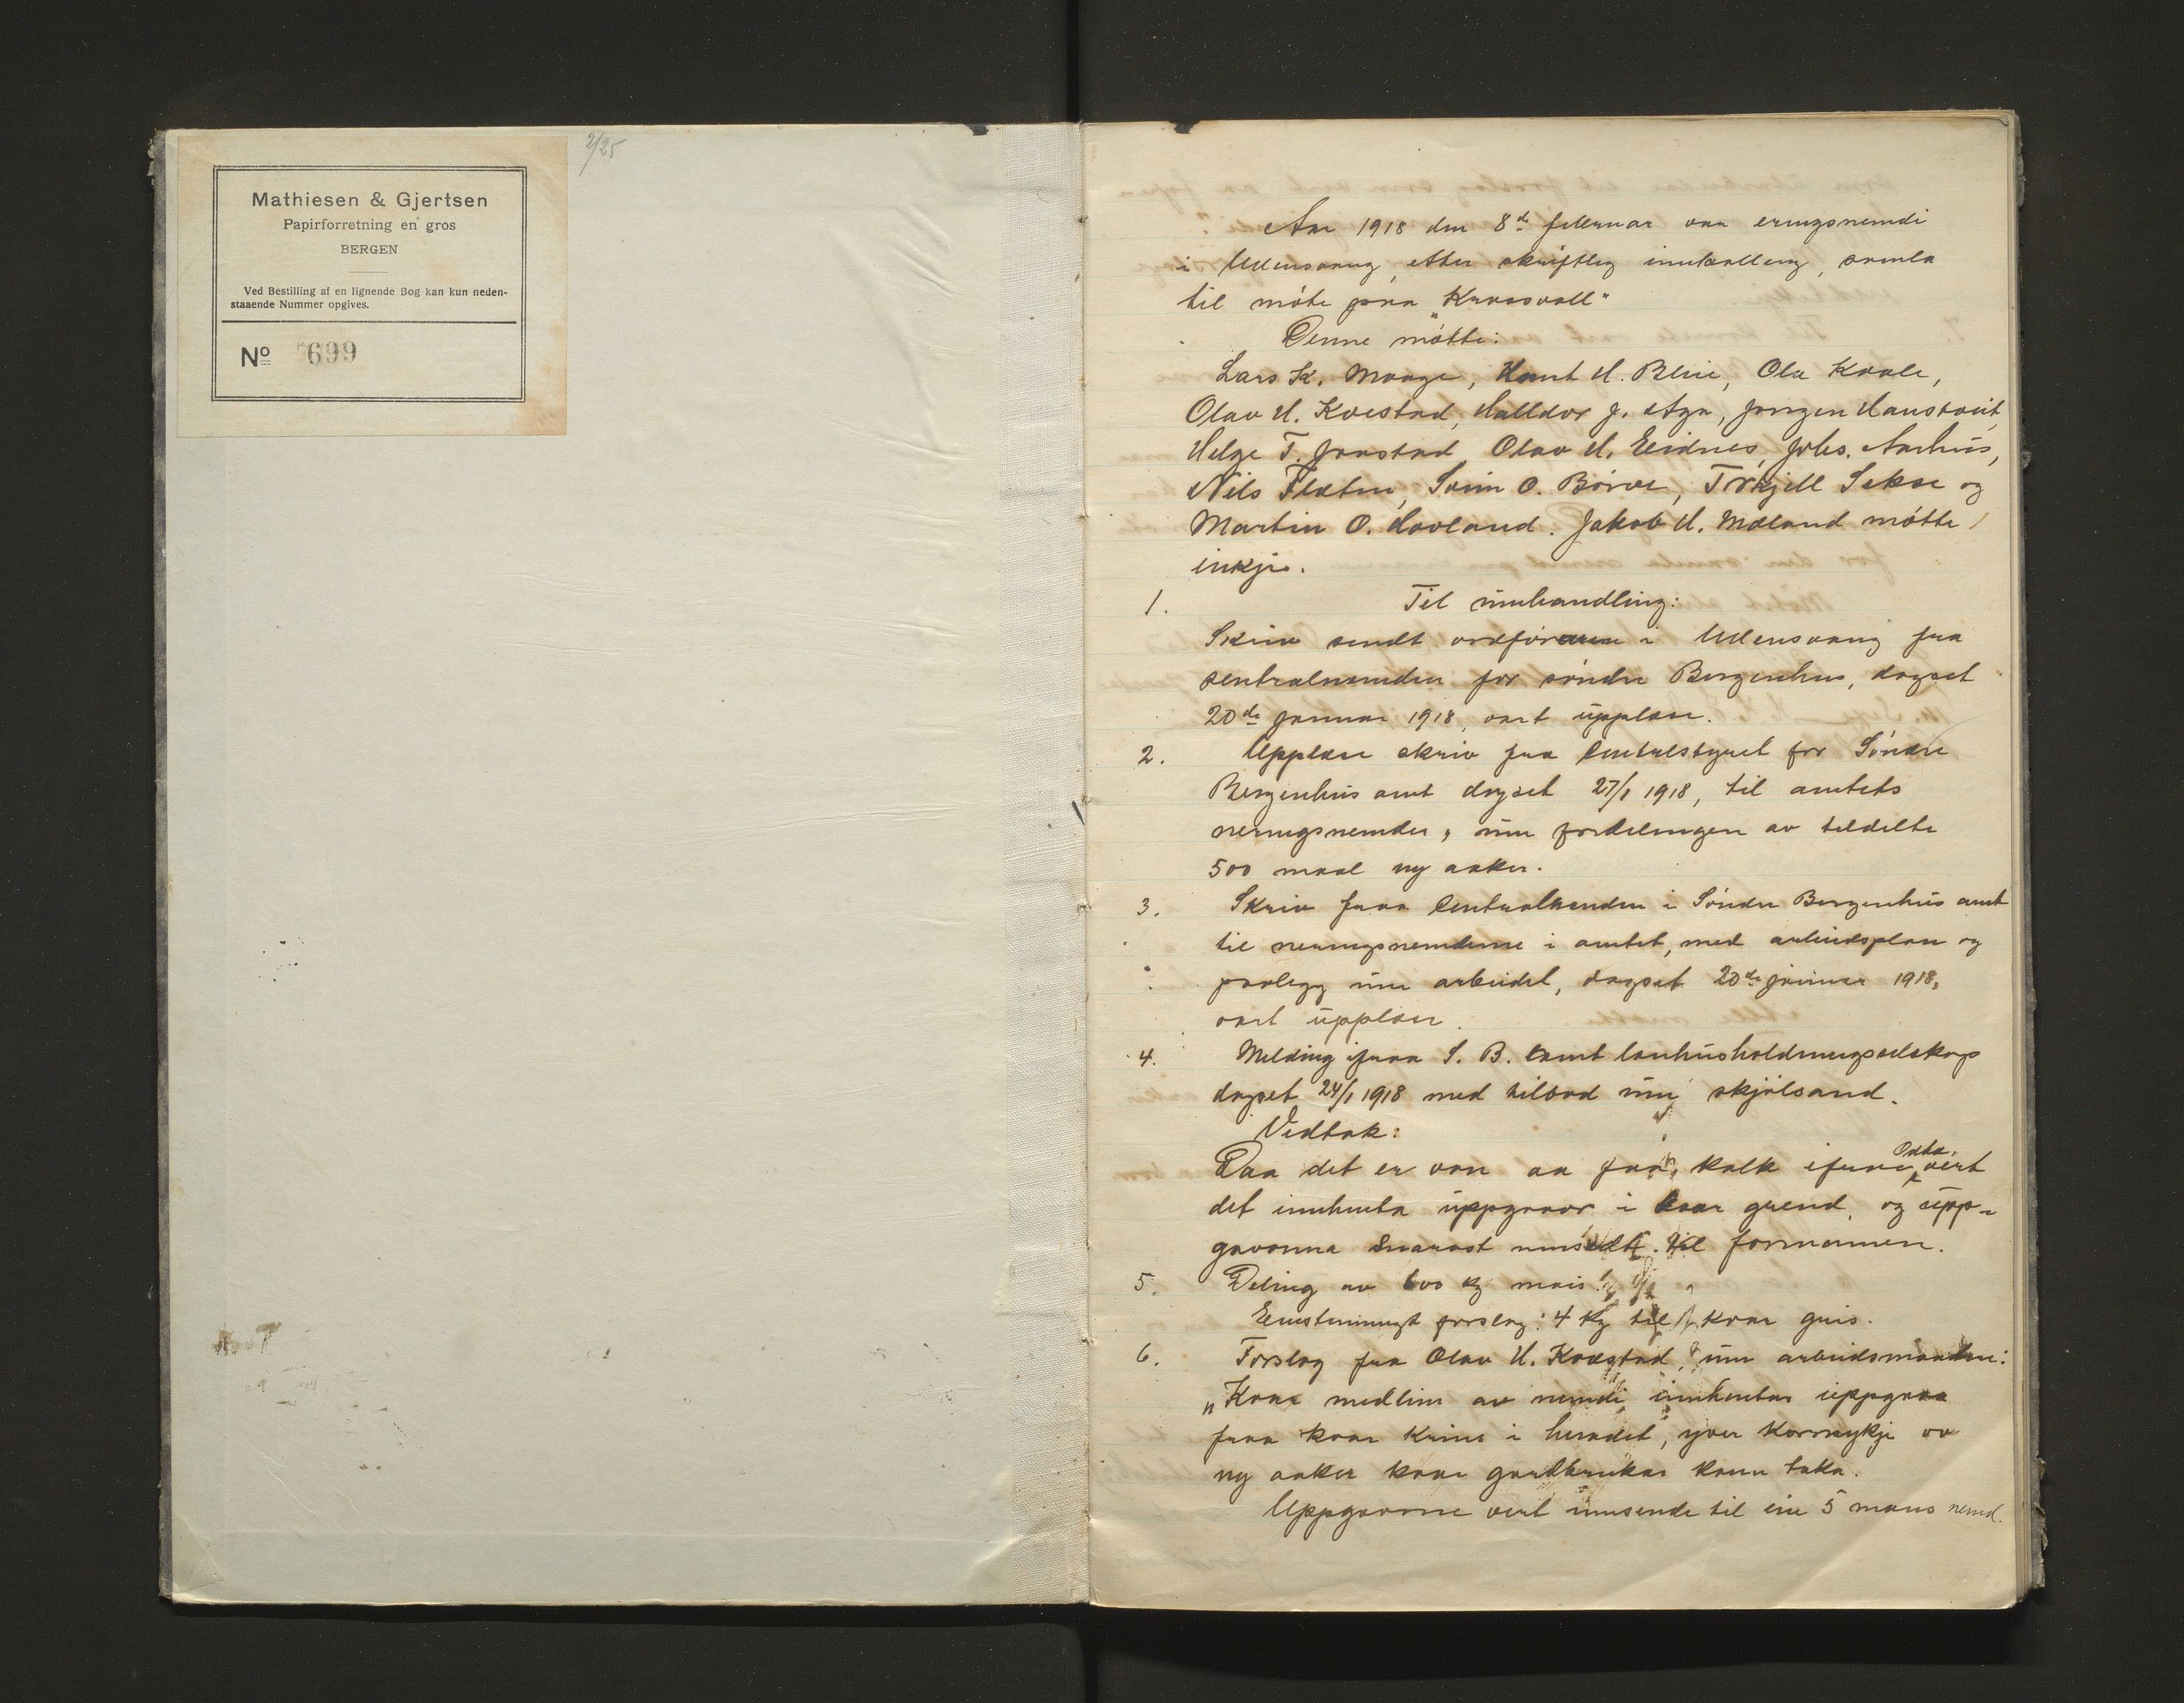 Mathiesen & Gjertsen
Papirforretning en gros
BERGEN
Ved Bestilling af en lignende Bog kan kun neden-
staaende Nummer opgives.
No 699
2/25
Aar 1918 den 8de februar var eringsnemdi
i Ullensvang, etter skriftleg innkalling, samla
til møte paa „Kvassvoll"
Denne møtte:
Lars K. Maage, Knut H. Blie, Ola Kvale,
Olav H. Kvestad, Halldor J. Aga, Jørgen Haustveit,
Helge T. Jaastad, Olav H. Eidnes, Johs. Aarhus,
Nils Flaten, Svein O. Børve, Torkjell Sekse og
Martin O. Hovland. Jakob H. Mæland møtte
inkje.
1. Til umhandling:
Skriv sendt ordføraren i Ullensvang fra
sentralnemden for søndre Bergenhus, dagset
20de januar 1918, vart upplese.
2. Upplese skriv fra Centralstyret for Søndre
Bergenhus amt dagset 27/1 1918, til amtets
neringsnemder, um fordelingen av tildelte
500 maal ny aaker.
3. Skriv fraa Centralnemden i Søndre Bergenhus amt
til neringsnemdene i amtet, med arbeidsplan og
paalegg um arbeidet, dagset 20de januar 1918,
vart upplese.
4. Melding ifraa S. B. amt landhusholdningsselskap
dagset 24/1 1918 med tilbod um skjelsand.
Vedtak:
Daa det er von aa faa kalk ifraa Odda, vert
det innhenta uppgaavor i kvar grend, og upp-
gavonna snarast innsendt til formannen.
5. Deling av 600 kg mais
Einstemmigt forslag: 4 Kg til kvar gris.
6. Forslag fra Olav H. Kvestad, um arbeidsmaaten:
„Kvar medlem av nemdi innhentar uppgaava
fraa kvar krins i heradet, yver kormykje av
ny aaker kvar gardbrukar kann taka.
Uppgaavone vert innsende til ein 5 manns nemd.